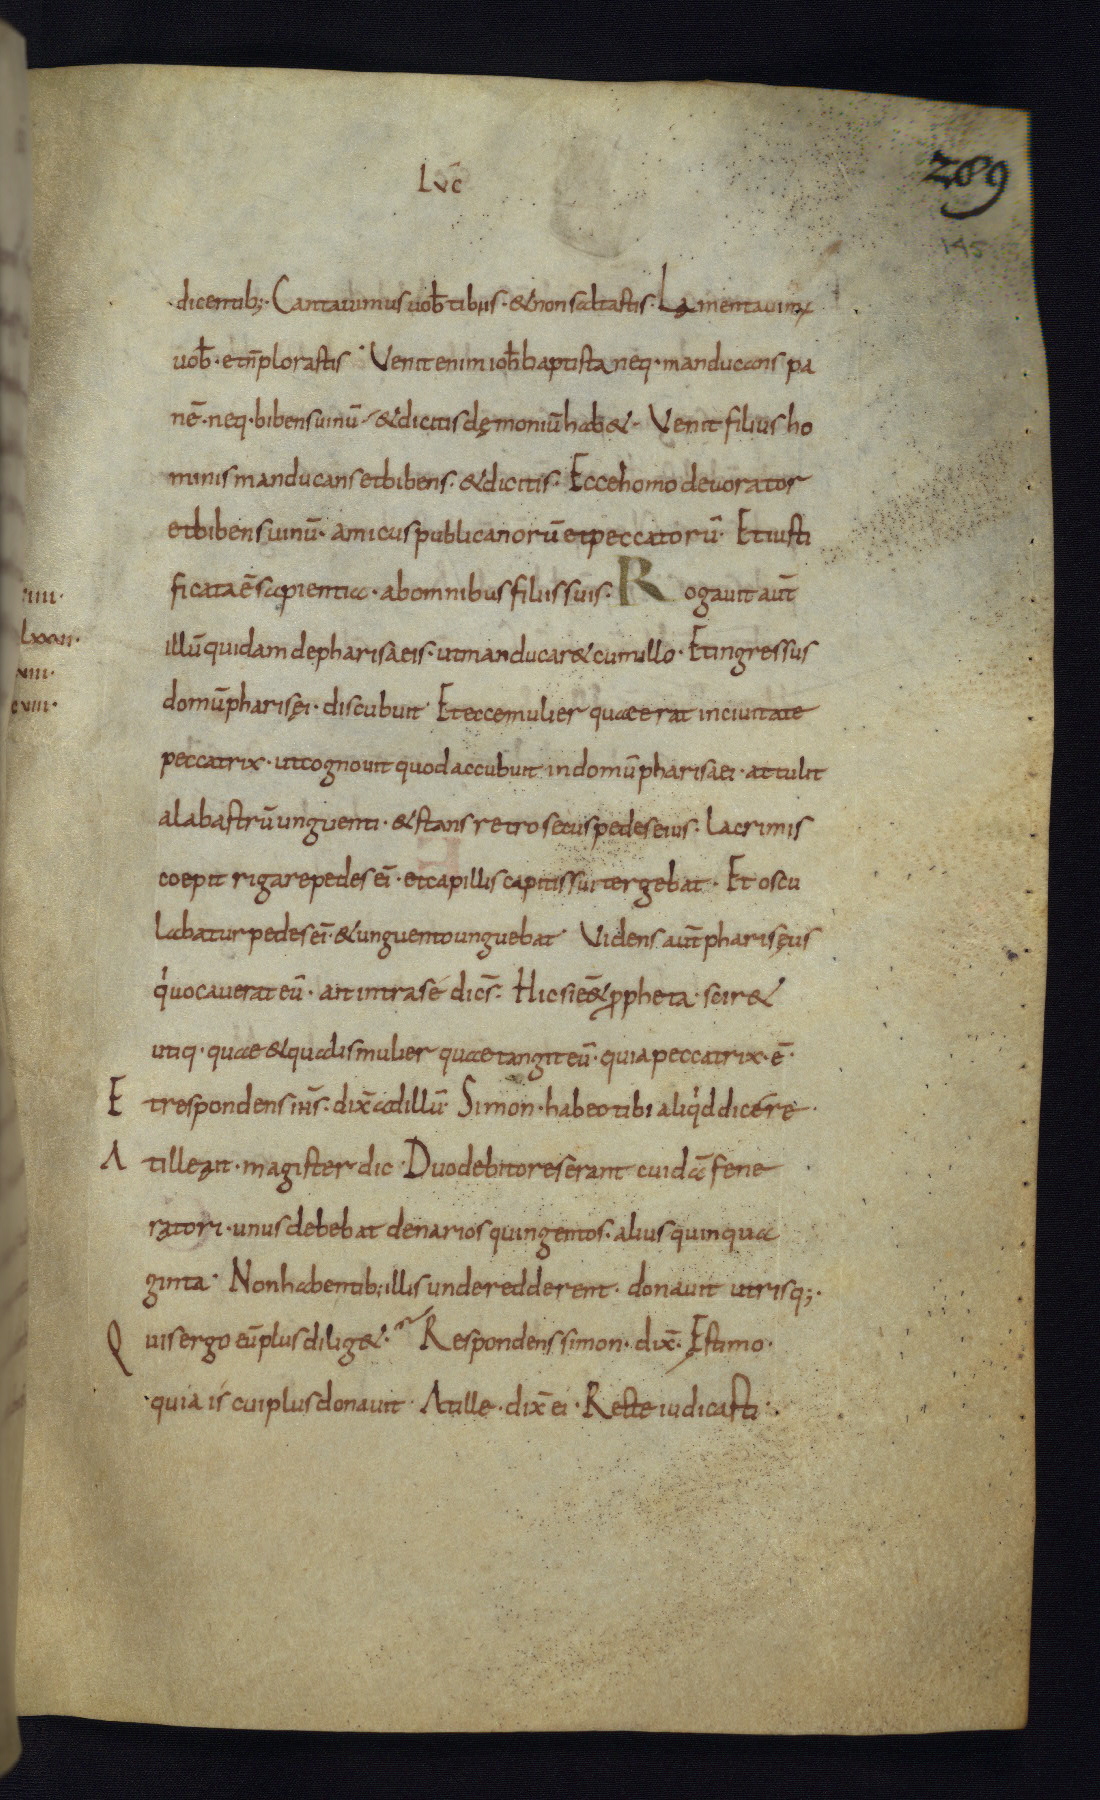 Lvc̄
289
145
dicentib;· Cantauimus uob̄ tibiis · & non saltastis · Lamentauim;
uob̄ · et n̄ plorastis · Venit enim ioh̄ baptista neq · manducans pa
nē · neq · bibens uinū · & dicitis dęmoniū hab& · Venit filius ho
minis manducans et bibens · & dicitis · Ecce homo deuorator
et bibens uinū · amicus publicanorū et peccatorū · Et iusti
ficata ē sapientia · ab omnibus filiis suis · Rogauit aut̄
illū quidam de pharisaeis · ut manducar& cum illo · Et ingressus
domū pharisęi · discubuit · Et ecce mulier quae erat in ciuitate
peccatrix · ut cognouit quod accubuit in domū pharisaei · attulit
alabastrū unguenti · & stans retro secus pedes eius · lacrimis
coepit rigare pedes ei᷒ · et capillis capitis sui tergebat · Et oscu
labatur pedes ei᷒ · & unguento unguebat · Videns aut̄ pharisęus
q̇ uocauerat eū · ait intra sé dics̄ · Hic si ēē& ꝓpheta · scir&
utiq · quae & qualis mulier quae tangit eū · quia peccatrix · ē ·
Et respondens ih̄s · dix̄ ad illū · Simon · habeo tibi aliq̇d dicere ·
At ille ait · magister dic · Duo debitores erant cuidā fene
ratori · unus debebat denarios quingentos · alius quinqua
ginta · Non habentib; illis unde redderent · donauit utrisq; ·
Quis ergo eū plus dilig& · Respondens simon · dix̄ · Estimo ·
quia is cui plus donauit · At ille · dix̄ ei · Recte iudicasti ·